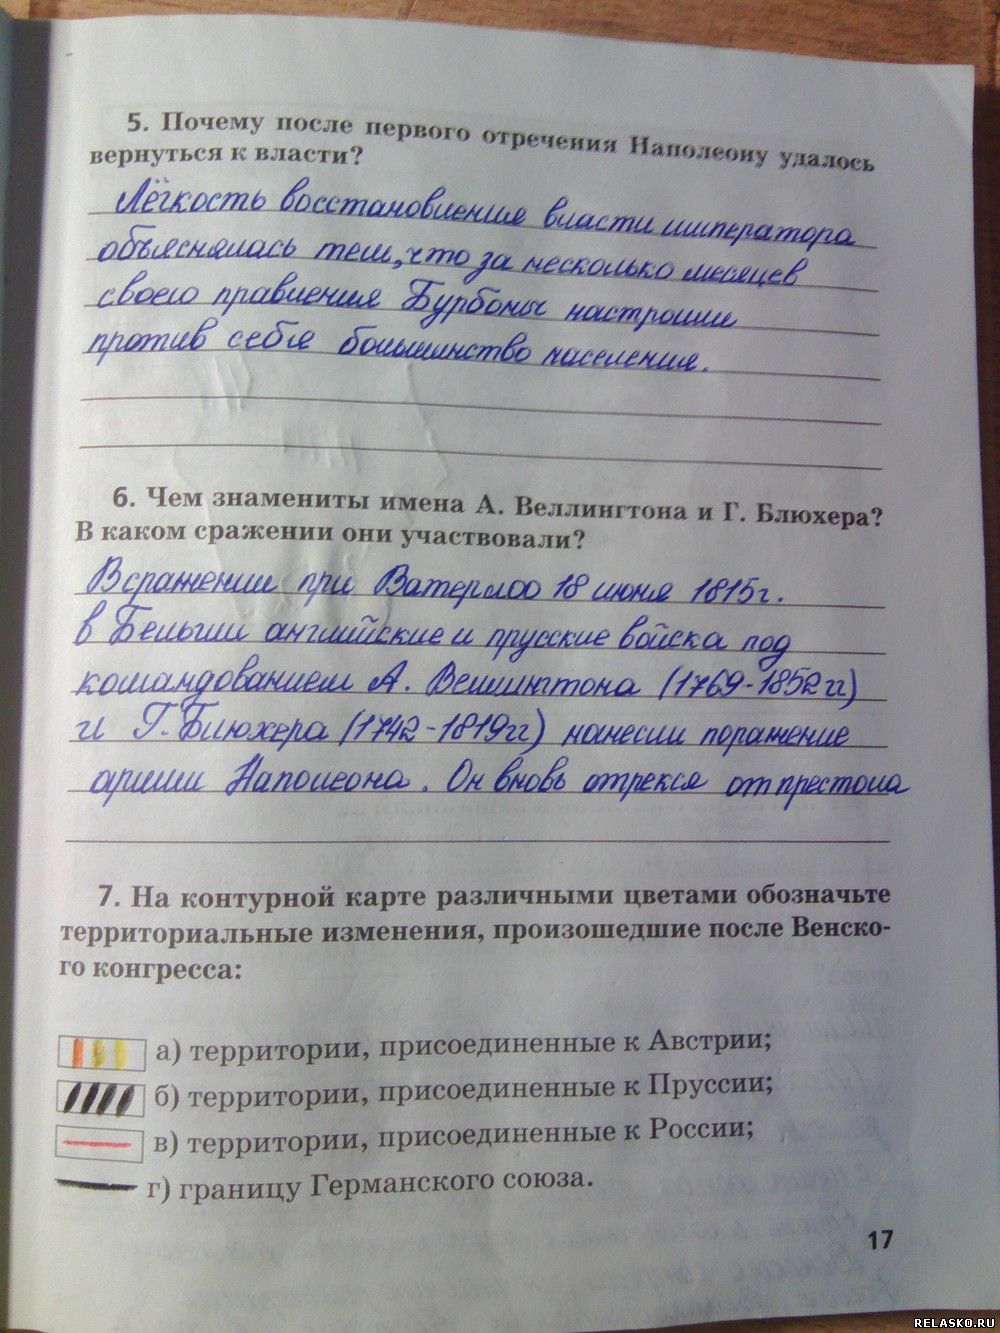 5. Почему после первого отречения Наполеону удалось
вернуться к власти?
Лёгкость восстановления власти императора
объяснялась тем, что за несколько месяцев
своего правления Бурбоны настроили
против себя большинство населения.
6. Чем знамениты имена А. Веллингтона и Г. Блюхера?
В каком сражении они участвовали?
В сражении при Ватерлоо 18 июня 1815г.
в Бельгии английские и прусские войска под
командованием А. Веллингтона (1769-1852гг)
и Г. Блюхера (1742-1819гг) нанесли поражение
армии Наполеона. Он вновь отрекся от престола
7. На контурной карте различными цветами обозначьте
территориальные изменения, произошедшие после Венско-
го конгресса:
а) территории, присоединенные к Австрии;
б) территории, присоединенные к Пруссии;
в) территории, присоединенные к России;
г) границу Германского союза.
17
RELASKO.RU